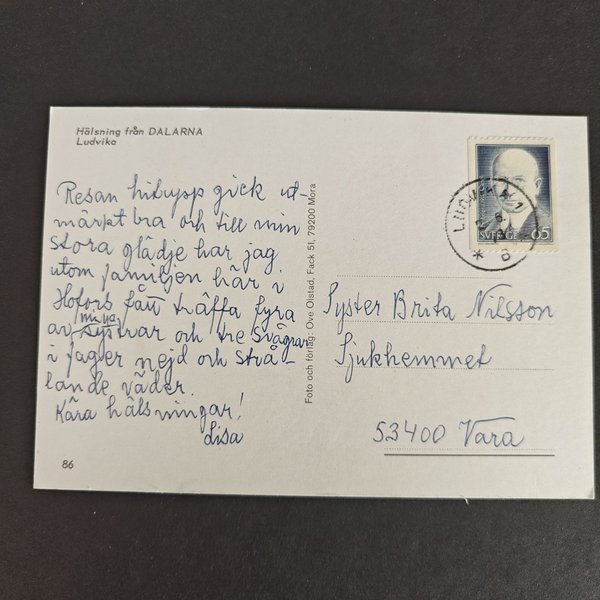 Hälsning från DALARNA
Ludvika
Resan hitupp gick ut-
märkt bra och till min
stora glädje har jag
utom familjen här i
Hofors fått träffa fyra
av mina systrar och tre svågrar
i fager nejd och strå-
lande väder.
Kära hälsningar!
Lisa
86
Foto och förlag: Ove Olstad, Fack 51, 79200 Mora
SVERIGE 65
LUDVIKA 1
B
Syster Brita Nilsson
Sjukhemmet
53400 Vara